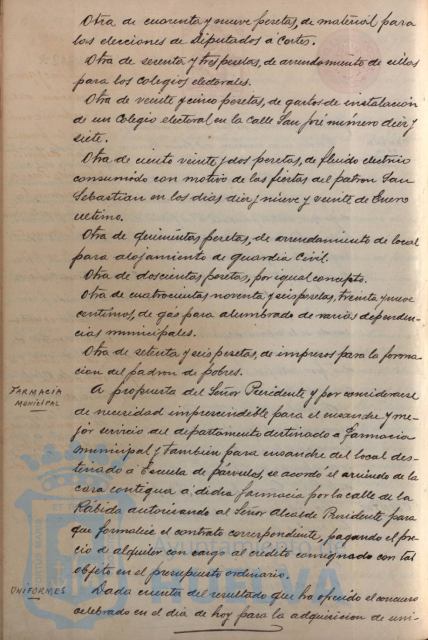 Otra de cuarenta y nueve pesetas, de material para
las elecciones de Diputados á Cortes.
Otra de setenta y tres pesetas, de arrendamiento de sillas
para los Colegios electorales.
Otra de veinte y cinco pesetas, de gastos de instalación
de un Colegio electoral en la calle San José número diez y
siete.
Otra de ciento veinte y dos pesetas, de fluido electrico
consumido con motivo de las fiestas del patron San
Sebastian en los dias diez y nueve y veinte de Enero
ultimo.
Otra de quinientas pesetas, de arrendamiento de local
para alojamiento de guardia Civil.
Otra de doscientas pesetas, por igual concepto.
Otra de cuatrocientas noventa y seis pesetas, treinta y nueve
centimos, de gas para alumbrado de varias dependen-
cias municipales.
Otra de setenta y seis pesetas, de impresos para la forma-
cion del padron de pobres.
FARMACIA
MUNICIPAL
A propuesta del Señor Presidente y por considerarse
de necesidad imprescindible para el ensanche y me-
jor servicio del departamento destinado a Farmacia
municipal y tambien para ensanche del local des-
tinado a Escuela de párvulos, se acordó el arriendo de la
casa contigua a dicha farmacia por la calle de la
Rábida autorizando al Señor Alcalde Presidente para
que formalice el contrato correspondiente, pagando el pre-
cio de alquiler con cargo al credito consignado con tal
objeto en el presupuesto ordinario.
UNIFORMES
Dada cuenta del resultado que ha ofrecido el concurso
celebrado en el dia de hoy para la adquisicion de uni-